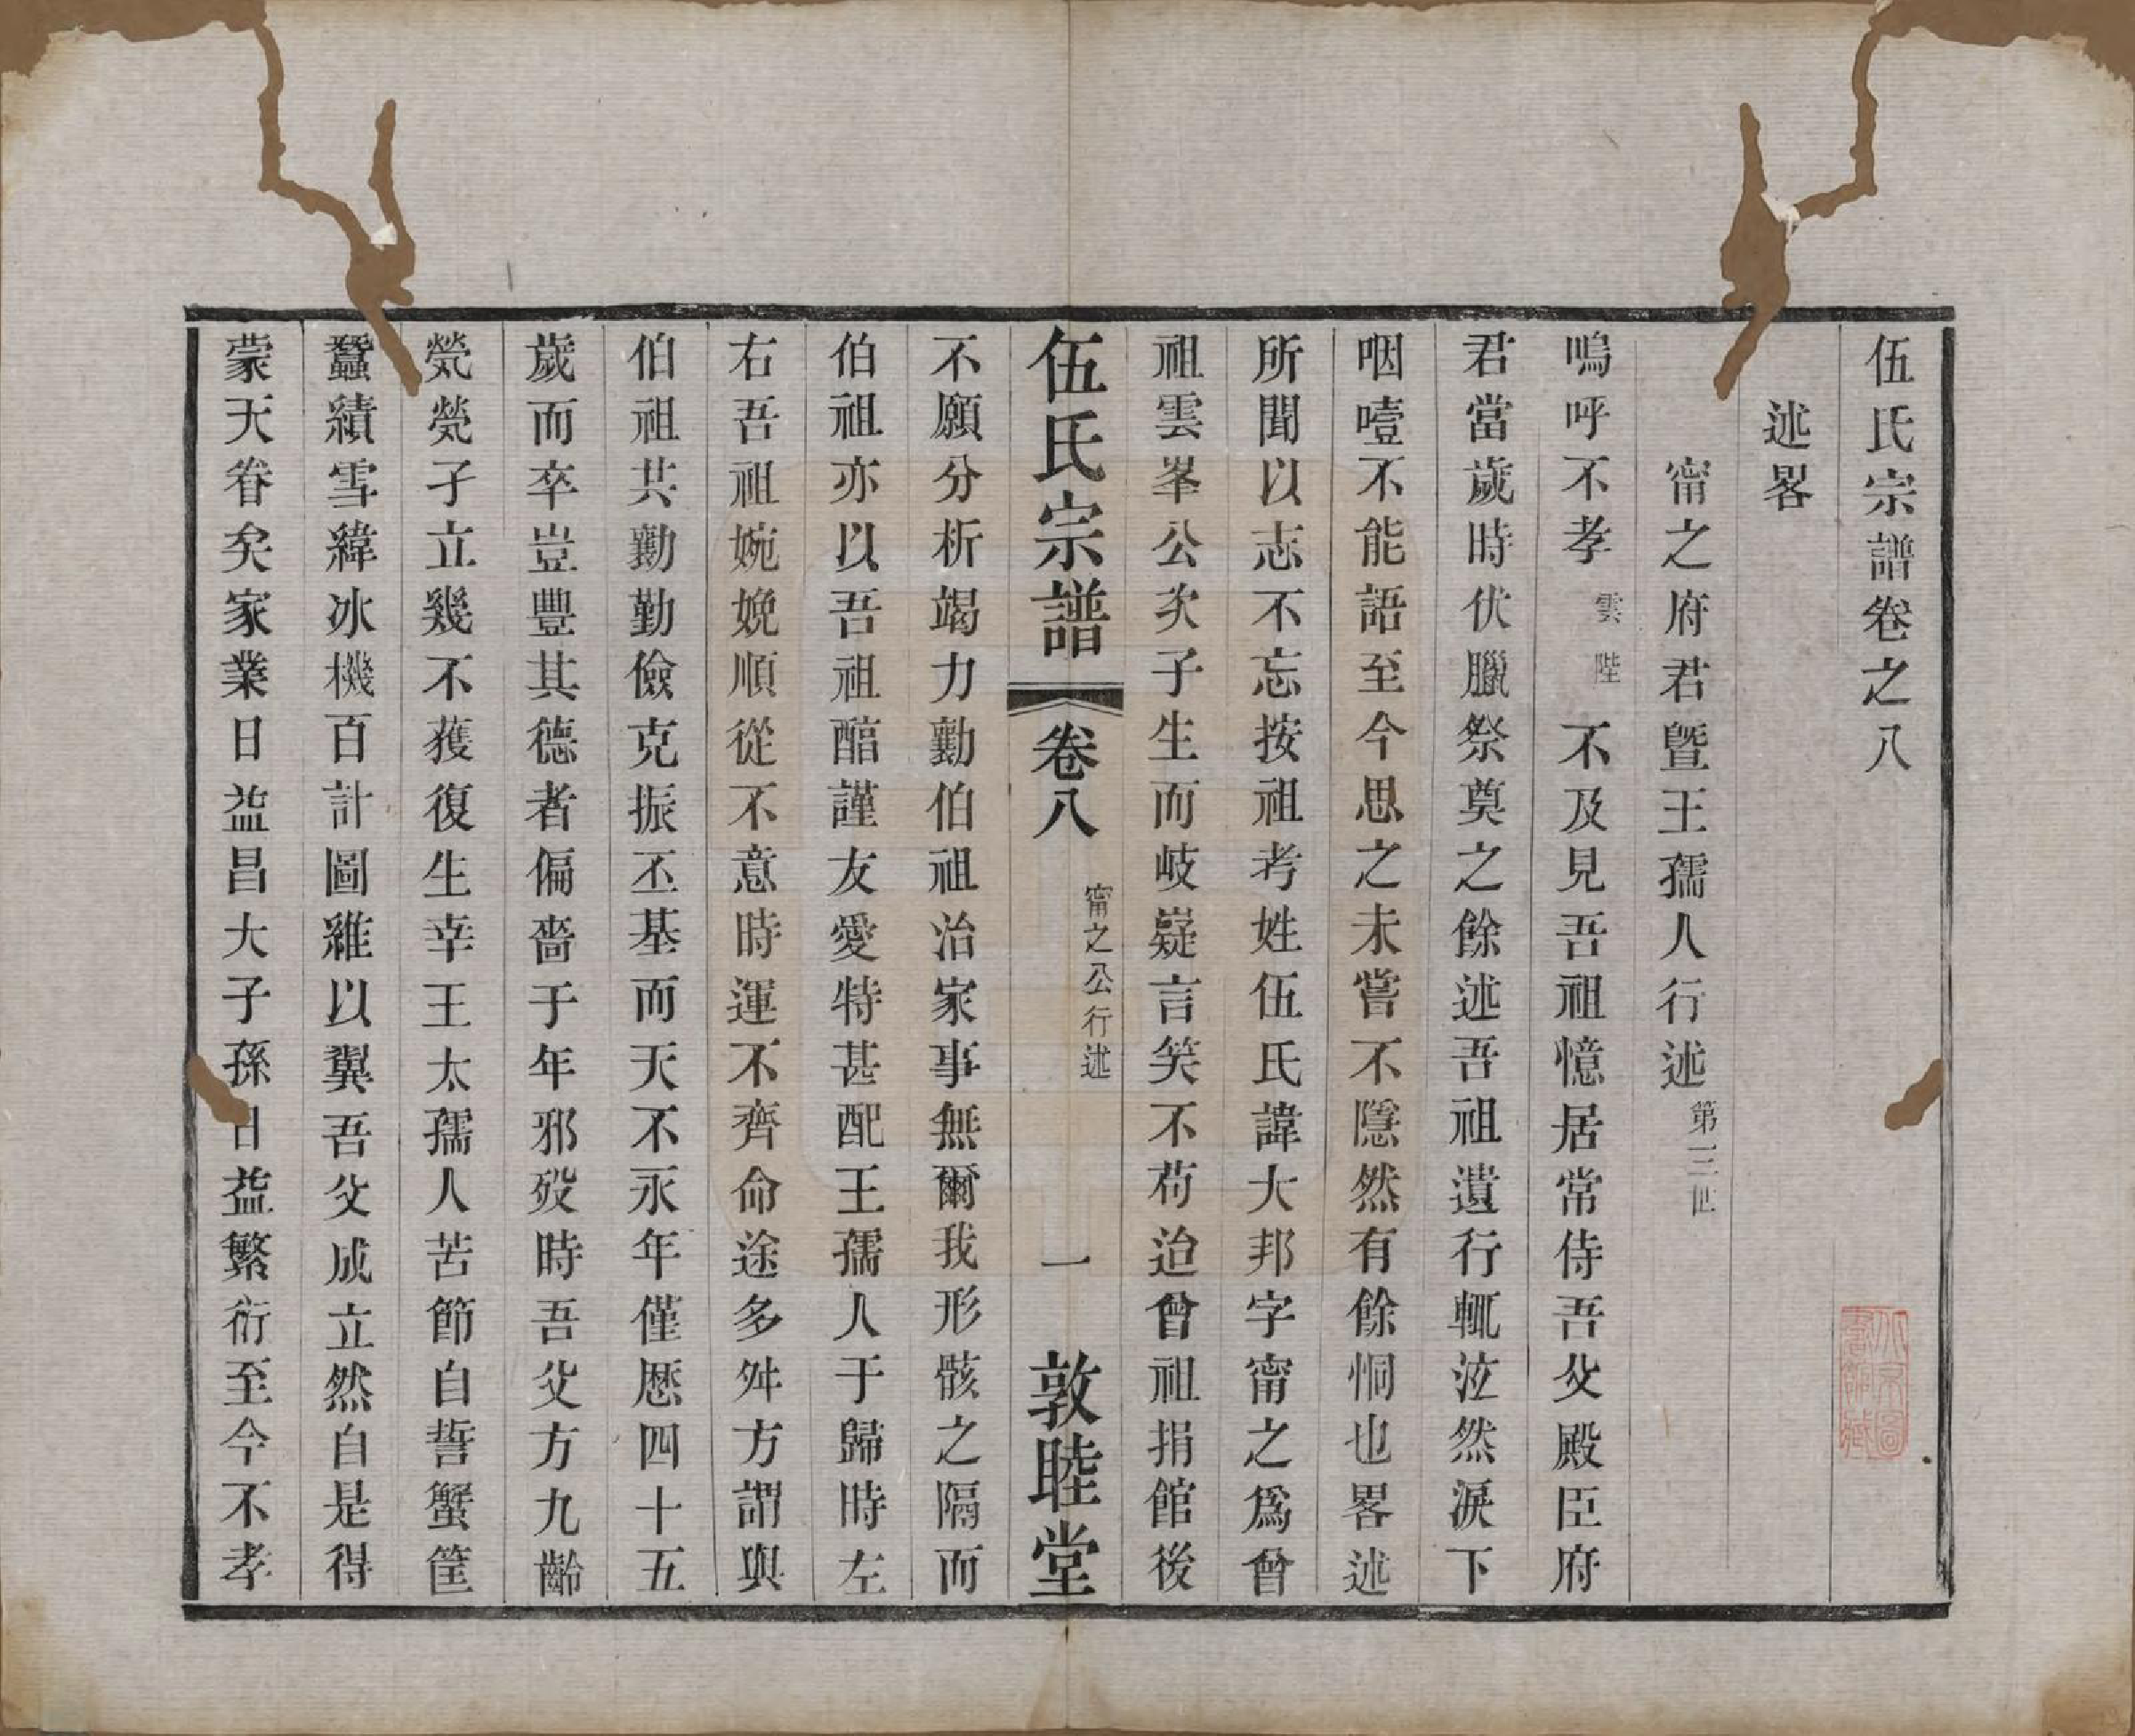 伍氏宗譜卷之八
述畧
甯之府君曁王孺人行述第三世
嗚呼不孝雲陛不及見吾祖憶居常侍吾父殿臣府
君當歲時伏臘祭奠之餘述吾祖遺行輒泣然淚下
咽噎不能語至今思之未嘗不隱然有餘恫也畧述
所聞以志不忘按祖考姓伍氏諱大邦字甯之爲曾
祖雲峯公次子生而岐嶷言笑不苟迨曾祖捐館後
伍氏宗譜 卷八 甯之公行述 一 敦睦堂
不願分析竭力勷伯祖治家事無爾我形骸之隔而
伯祖亦以吾祖醕謹友愛特甚配王孺人于歸時左
右吾祖婉娩順從不意時運不齊命途多舛方謂與
伯祖共勷勤儉克振丕基而天不永年僅厯四十五
歲而卒豈豐其德者偏嗇于年邪歿時吾父方九齡
煢煢孑立幾不獲復生幸王太孺人苦節自誓蟹筐
蠶績雪緯冰機百計圖維以翼吾父成立然自是得
蒙天眷矣家業日益昌大子孫日益繁衍至今不孝